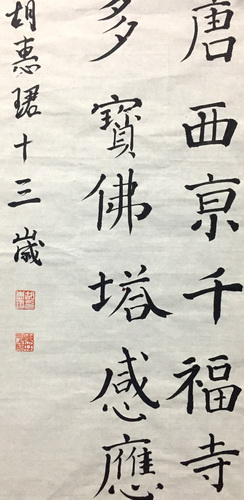 唐西京千福寺
多寶佛塔感應
胡惠珺十三歲